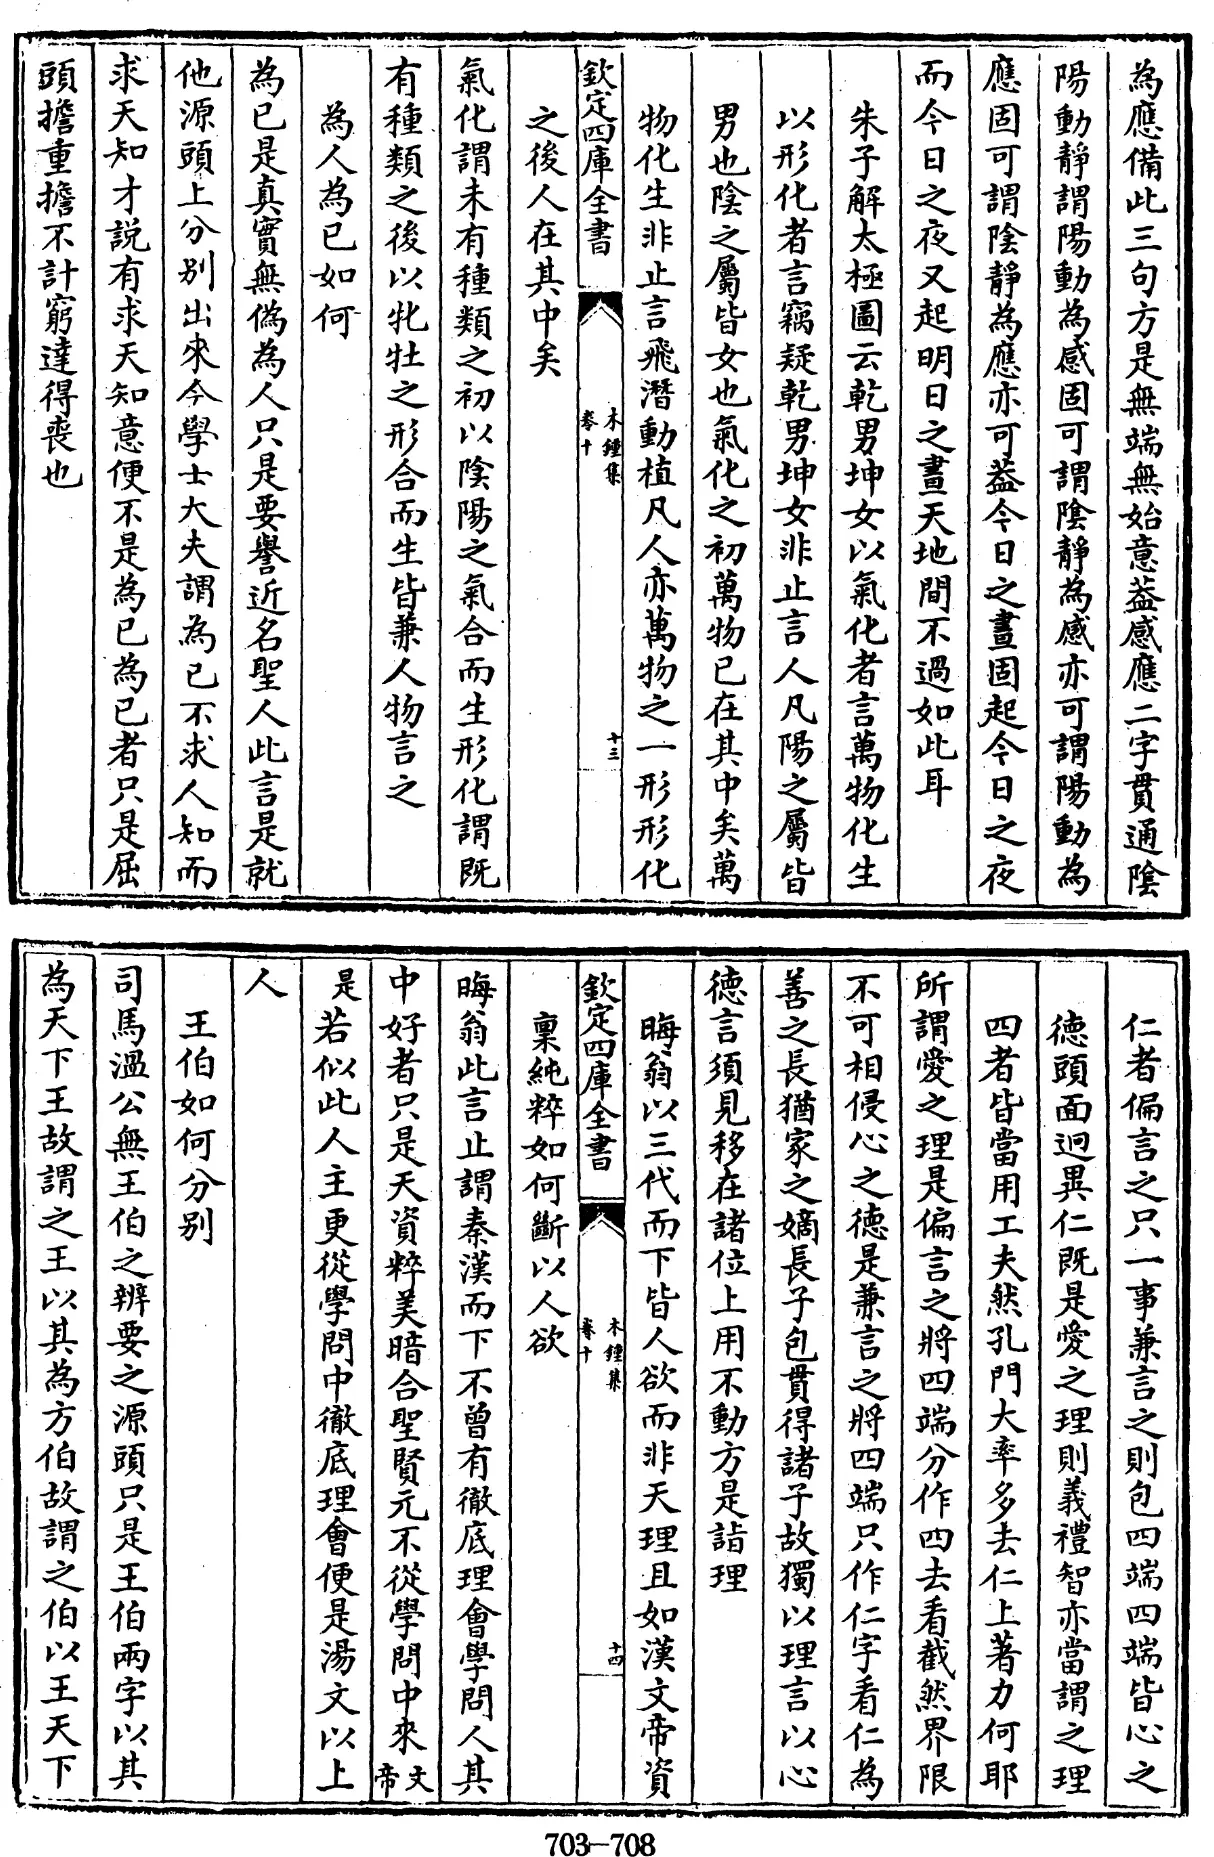 為應備此三句方是無端無始意葢感應二字貫通陰
陽動靜謂陽動為感固可謂陰靜為感亦可謂陽動為
應固可謂陰靜為應亦可葢今日之晝固起今日之夜
而今日之夜又起明日之晝天地間不過如此耳
朱子解太極圖云乾男坤女以氣化者言萬物化生
以形化者言竊疑乾男坤女非止言人凡陽之屬皆
男也陰之屬皆女也氣化之初萬物已在其中矣萬
物化生非止言飛潛動植凡人亦萬物之一形形化
欽定四庫全書
木鍾集
卷十
十三
之後人在其中矣
氣化謂未有種類之初以陰陽之氣合而生形化謂既
有種類之後以牝牡之形合而生皆兼人物言之
為人為已如何
為已是真實無偽為人只是要譽近名聖人此言是就
他源頭上分別出來今學士大夫謂為已不求人知而
求天知才說有求天知意便不是為已為已者只是屈
頭擔重擔不計窮達得喪也
仁者偏言之只一事兼言之則包四端四端皆心之
德頭面迥異仁既是愛之理則義禮智亦當謂之理
四者皆當用工夫然孔門大率多去仁上著力何耶
所謂愛之理是偏言之將四端分作四去看截然界限
不可相侵心之德是兼言之將四端只作仁字看仁為
善之長猶家之嫡長子包貫得諸子故獨以理言以心
德言須見移在諸位上用不動方是詣理
晦翁以三代而下皆人欲而非天理且如漢文帝資
欽定四庫全書
木鍾集
卷十
十四
稟純粹如何斷以人欲
晦翁此言止謂秦漢而下不曾有徹底理會學問人其
中好者只是天資粹美暗合聖賢元不從學問中來文帝
是若似此人主更從學問中徹底理會便是湯文以上
人
王伯如何分別
司馬溫公無王伯之辨要之源頭只是王伯兩字以其
為天下王故謂之王以其為方伯故謂之伯以王天下
703-708